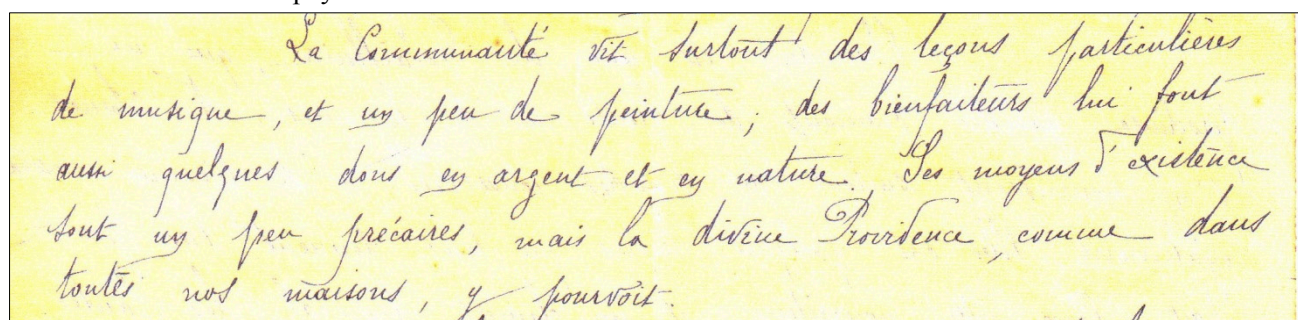 La Communauté vit surtout des leçons particulières
de musique, et un peu de peinture ; des bienfaiteurs lui font
aussi quelques dons en argent et en nature. Ses moyens d'existence
sont un peu précaires, mais la divine Providence, comme dans
toutes nos maisons, y pourvoit.